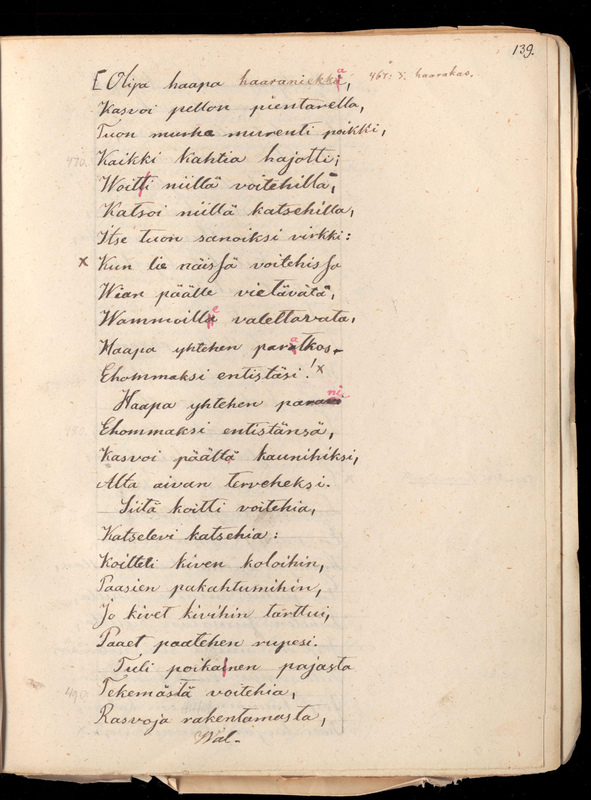 139.
[Olipa haapa haaraniekka, 467: 3. haarakas.
Kasvoi pellon pientarella,
Tuon murha murenti poikki,
470. Kaikki kahtia hajotti;
Woiti niillä voitehilla,
Katsoi niillä katsehilla,
Itse tuon sanoiksi virkki:
x Kun lie näissä voitehissa
Wian päälle vietävätä,
Wammoille valeltavata,
Haapa yhtehen paratkos,
Ehommaksi entistäsi!x
Haapa yhtehen parani
480. Ehommaksi entistänsä,
Kasvoi päältä kaunihiksi,
Alta aivan terveheksi.
Siitä koitti voitehia,
Katselevi katsehia:
Koitteli kiven koloihin,
Paasien pakahtumihin,
Jo kivet kivihin tarttui,
Paaet paatehen rupesi.
Tuli poikanen pajasta
490. Tekemästä voitehia,
Rasvoja rakentamasta,
Wal-